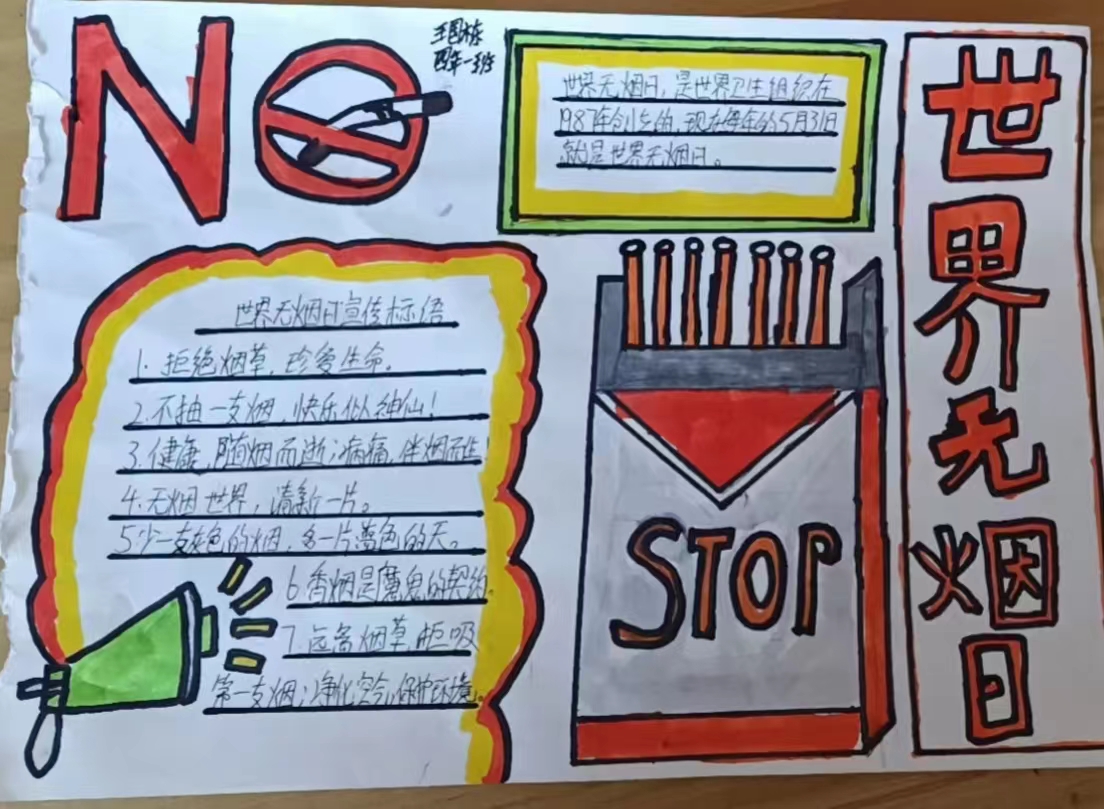 NO
王国栋
四年一班
世界无烟日，是世界卫生组织在
1987年创立的，现在每年的5月31日
就是世界无烟日。
世界无烟日
世界无烟日宣传标语
1. 拒绝烟草，珍爱生命。
2.不抽一支烟，快乐似神仙！
3.健康，随烟而逝；病痛，伴烟而生
4.无烟世界，清新一片。
5少一支灰色的烟，多一片蓝色的天。
6香烟是魔鬼的契约。
7.远离烟草，拒吸
第一支烟；净化空气，保护环境。
STOP